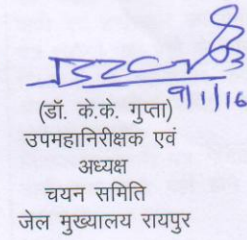 9/1/16
(डॉ. के.के. गुप्ता)
उपमहानिरीक्षक एवं
अध्यक्ष
चयन समिति
जेल मुख्यालय रायपुर